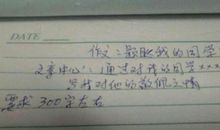 DATE
作文：题《我的同学
文章中心：通过对我的同学×××
写对他的敬佩之情
要求 300字左右